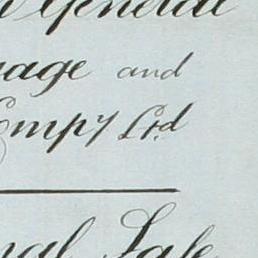 General
age and
Compy Ltd
nal Safe